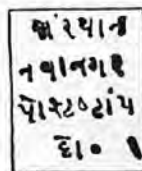 જાં સંસ્થાન
નવાનગર
પોસ્ટટાંપ
દો૦ ૧